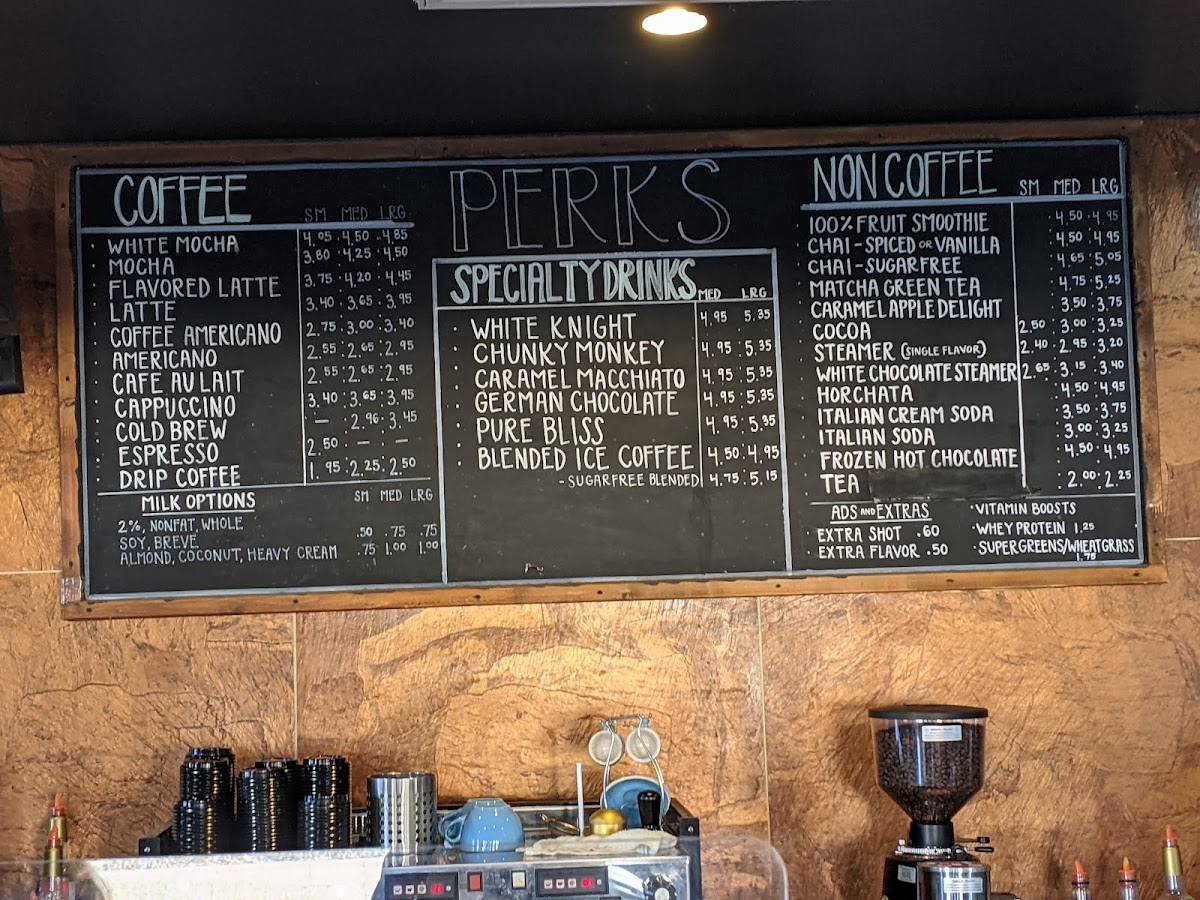 PERKS
COFFEE SM MED LRG
WHITE MOCHA 4.05 4.50 4.85
MOCHA 3.80 4.25 4.50
FLAVORED LATTE 3.75 4.20 4.45
LATTE 3.40 3.65 3.95
COFFEE AMERICANO 2.75 3.00 3.40
AMERICANO 2.55 2.65 2.95
CAFE AU LAIT 2.55 2.65 2.95
CAPPUCCINO 3.40 3.65 3.95
COLD BREW — 2.96 3.45
ESPRESSO 2.50 — —
DRIP COFFEE 1.95 2.25 2.50
MILK OPTIONS SM MED LRG
2%, NONFAT, WHOLE
SOY, BREVE .50 .75 .75
ALMOND, COCONUT, HEAVY CREAM .75 1.00 1.00
SPECIALTY DRINKS MED LRG
WHITE KNIGHT 4.95 5.35
CHUNKY MONKEY 4.95 5.35
CARAMEL MACCHIATO 4.95 5.35
GERMAN CHOCOLATE 4.95 5.35
PURE BLISS 4.95 5.35
BLENDED ICE COFFEE 4.50 4.95
- SUGARFREE BLENDED 4.75 5.15
NON COFFEE SM MED LRG
100% FRUIT SMOOTHIE 4.50 4.95
CHAI - SPICED OR VANILLA 4.50 4.95
CHAI - SUGARFREE 4.65 5.05
MATCHA GREEN TEA 4.75 5.25
CARAMEL APPLE DELIGHT 3.50 3.75
COCOA 2.50 3.00 3.25
STEAMER (SINGLE FLAVOR) 2.40 2.95 3.20
WHITE CHOCOLATE STEAMER 2.65 3.15 3.40
HORCHATA 4.50 4.95
ITALIAN CREAM SODA 3.50 3.75
ITALIAN SODA 3.00 3.25
FROZEN HOT CHOCOLATE 4.50 4.95
TEA 2.00 2.25
ADS AND EXTRAS
EXTRA SHOT .60
EXTRA FLAVOR .50
· VITAMIN BOOSTS
· WHEY PROTEIN 1.25
· SUPERGREENS/WHEATGRASS
1.75